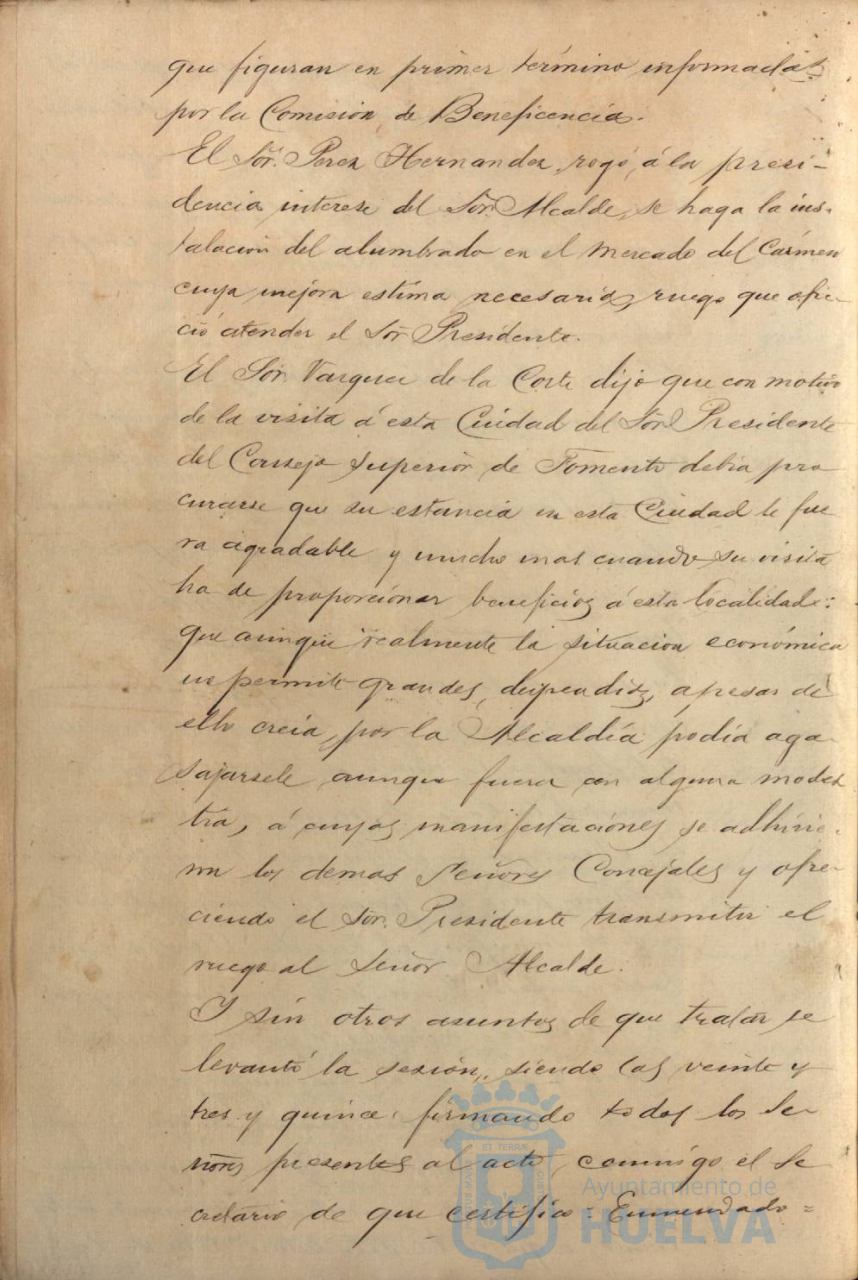 que figuran en primer término informadas
por la Comision de Beneficencia.
El Sör. Perez Hernandez, rogó, á la presi-
dencia interese del Sör. Alcalde, se haga la ins-
talacion del alumbrado en el Mercado del Cármen
cuya mejora estima necesaria, ruego que ofre-
ció atender el Sör Presidente.
El Sör. Vazquez de la Corte dijo que con motivo
de la visita á esta Ciudad del Sör. Presidente
del Consejo Superior de Fomento debia pro
curarse que su estancia en esta Ciudad le fue
ra agradable y mucho mas cuando su visita
ha de proporcionar beneficios á esta localidad:
que aunque realmente la situacion económica
no permite grandes dispendios, apesar de
ello creía, por la Alcaldía podia aga-
sajarsele aunque fuera con alguna modes
tia, á cuyas manifestaciones se adhirie-
ron los demas Señores Concejales y ofre-
ciendo el Sör. Presidente transmitir el
ruego al Señor Alcalde.
Y sin otros asuntos de que tratar se
levantó la sesión, siendo las veinte y
tres y quince, firmando todos los Se-
ñores presentes al acto, conmigo el Se
cretario de que certifico: Enmendado=
Ayuntamiento de
HUELVA